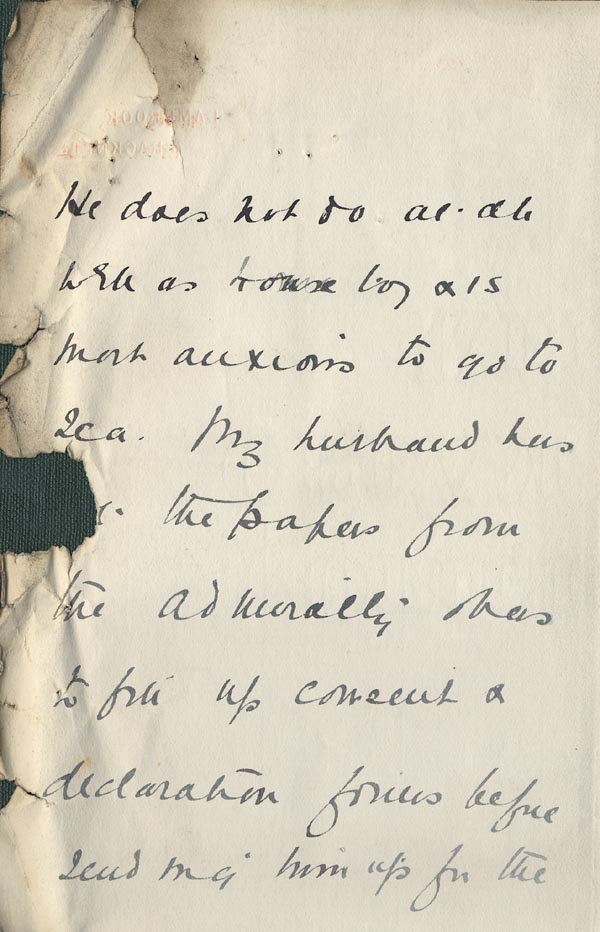 He does not do at all
well as house boy & is
most anxious to go to
sea. My husband has
the papers from
the Admiralty & has
to fill up consent &
declaration forms before
sending him up for the